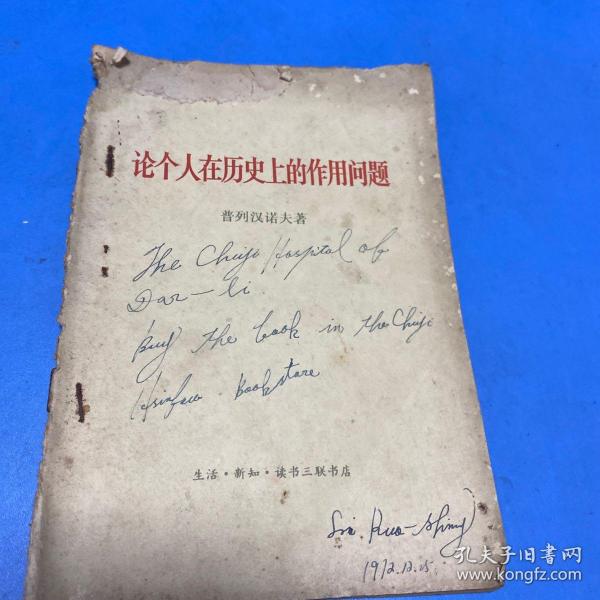 论个人在历史上的作用问题
普列汉诺夫著
The Chuji Hospital of
Dar-li
Buy the book in the Chuji
Bookstore
生活·新知·读书三联书店
Kuo-shing
1972.12.15
孔夫子旧书网
www.kongfz.com